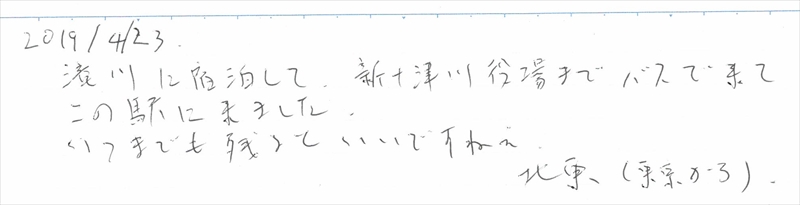 2019/4/23.
滝川に宿泊して、新十津川役場までバスで来て
この駅に来ました.
いつまでも残るといいですねえ.
北東 (東京から).